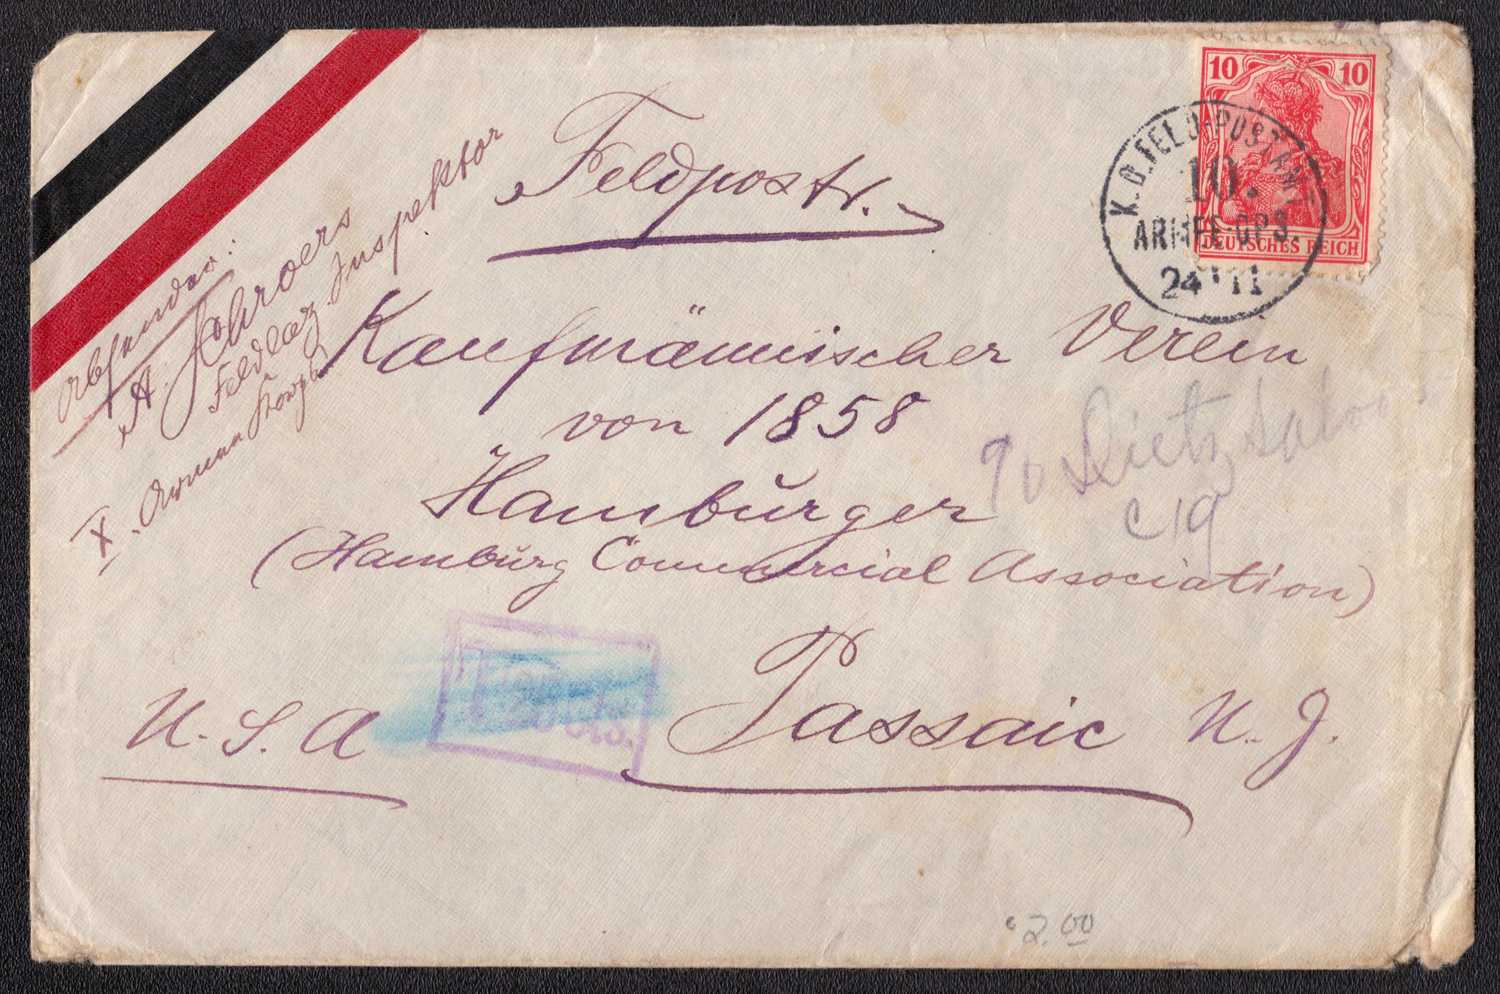 Absender:
A. Schroers
Feldlaz. Inspektor
X. Armee Korps
Feldpostbr.
10 10
DEUTSCHES REICH
K. D. FELD-POSTAMT
10.
ARMEE-CPS.
24 11
Kaufmännischer Verein
von 1858
Hamburger
(Hamburg Commercial Association)
c/o Dietz
C 19
T 20 cts.
Passaic N. J.
U. S. A
2.00